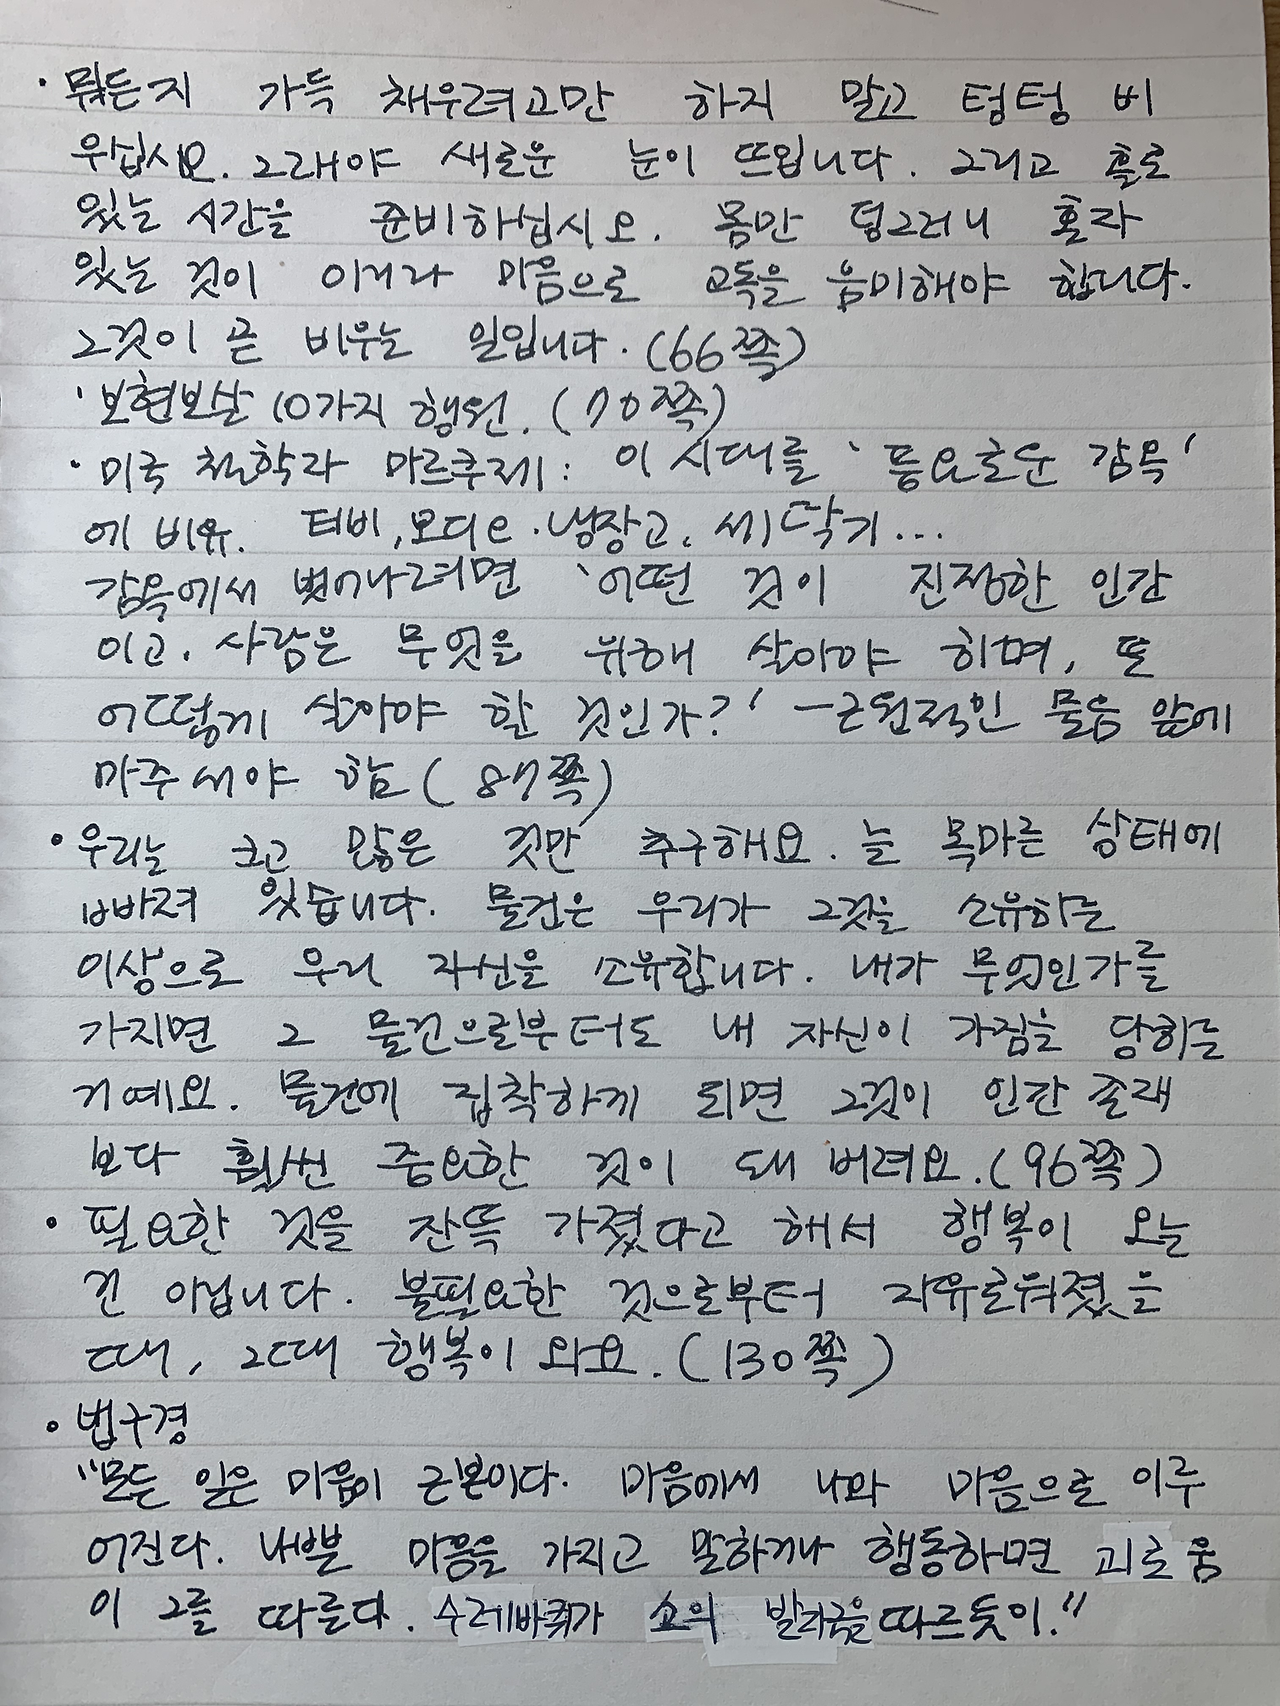 · 뭐든지 가득 채우려고만 하지 말고 텅텅 비
우십시오. 그래야 새로운 눈이 뜨입니다. 그리고 홀로
있는 시간을 준비하십시오. 몸만 덩그러니 혼자
있는 것이 아니라 마음으로 고독을 음미해야 합니다.
그것이 곧 비우는 일입니다. (66쪽)
· 보현보살 10가지 행원. (70쪽)
· 미국 철학자 마르쿠제: 이 시대를 '풍요로운 감옥'
에 비유. 티비, 오디오·냉장고, 세탁기...
감옥에서 벗어나려면 '어떤 것이 진정한 인간
이고, 사람은 무엇을 위해 살아야 하며, 또
어떻게 살아야 할 것인가?' - 근원적인 물음 앞에
마주서야 함 (87쪽)
· 우리는 크고 많은 것만 추구해요. 늘 목마른 상태에
빠져 있습니다. 물건은 우리가 그것을 소유하는
이상으로 우리 자신을 소유합니다. 내가 무엇인가를
가지면 그 물건으로부터도 내 자신이 가짐을 당하는
거예요. 물건에 집착하게 되면 그것이 인간 존재
보다 훨씬 중요한 것이 돼 버려요. (96쪽)
· 필요한 것을 잔뜩 가졌다고 해서 행복이 오는
건 아닙니다. 불필요한 것으로부터 자유로워졌을
때, 그때 행복이 와요. (130쪽)
· 법구경
"모든 일은 마음이 근본이다. 마음에서 나와 마음으로 이루
어진다. 나쁜 마음을 가지고 말하거나 행동하면 괴로움
이 그를 따른다. 수레바퀴가 소의 발자국을 따르듯이."